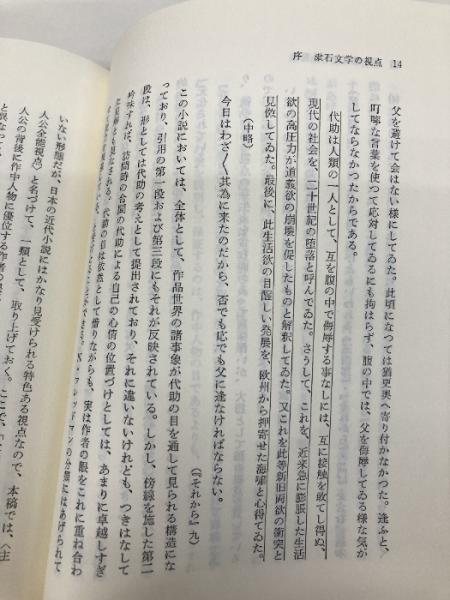 序 漱石文学の視点 14
父を避けて会はない様にしてゐた。此頃になつては猶更奥へ寄り付かなかつた。逢ふと、
叮嚀な言葉を使つて応対してゐるにも拘はらず、腹の中では、父を侮辱してゐる様な気が
してならなかつたからである。
代助は人類の一人として、互を腹の中で侮辱する事なしには、互に接触を敢てし得ぬ、
現代の社会を、二十世紀の堕落と呼んでゐた。さうして、これを、近来急に膨脹した生活
欲の高圧力が道義欲の崩壊を促したものと解釈してゐた。又これを此等新旧両欲の衝突と
見傚してゐた。最後に、此生活欲の目醒しい発展を、欧州から押寄せた海嘯と心得てゐた。
(中略)
今日はわざ〳〵其為に来たのだから、否でも応でも父に逢なければならない。
(『それから』九)
この小説においては、全体として、作品世界の諸事象が代助の目を通して見られる構造にな
っており、引用の第一段および第三段にもそれが反映されている。しかし、傍線を施した第二
段は、形としては代助の考えとして提出されており、それに違いないけれども、つきはなして
吟味すれば、訪問時の台国の代助による自己の心情の位置づけとしては、あまりに卓越しすぎ
代助の目は依然として借りながらも、実は作者の眼をこれに重ね合わ
の分類にはあげられて
いない形態だが、日本の近代小説にはかなり見受けられる特色ある視点なので、本稿では、〈主
人公全能視点〉と名づけて、一類として、取り上げておく。ここで、
人公の背後に作中人物に優位する作者の
と異なって、